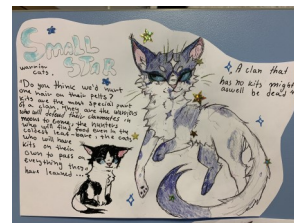 Small
Star
warrior
cats.
"Do you think we'd hurt
one hair on their pelts?
kits are the most special part
of a clan. They are the warriors
who will defend their clanmates in
moons to come, the hunters
who will find food even in the
coldest leaf-bare, the cats
who will have
kits on their
own to pass on
everything they
have learned...
A clan that
has no kits might
aswell be dead."